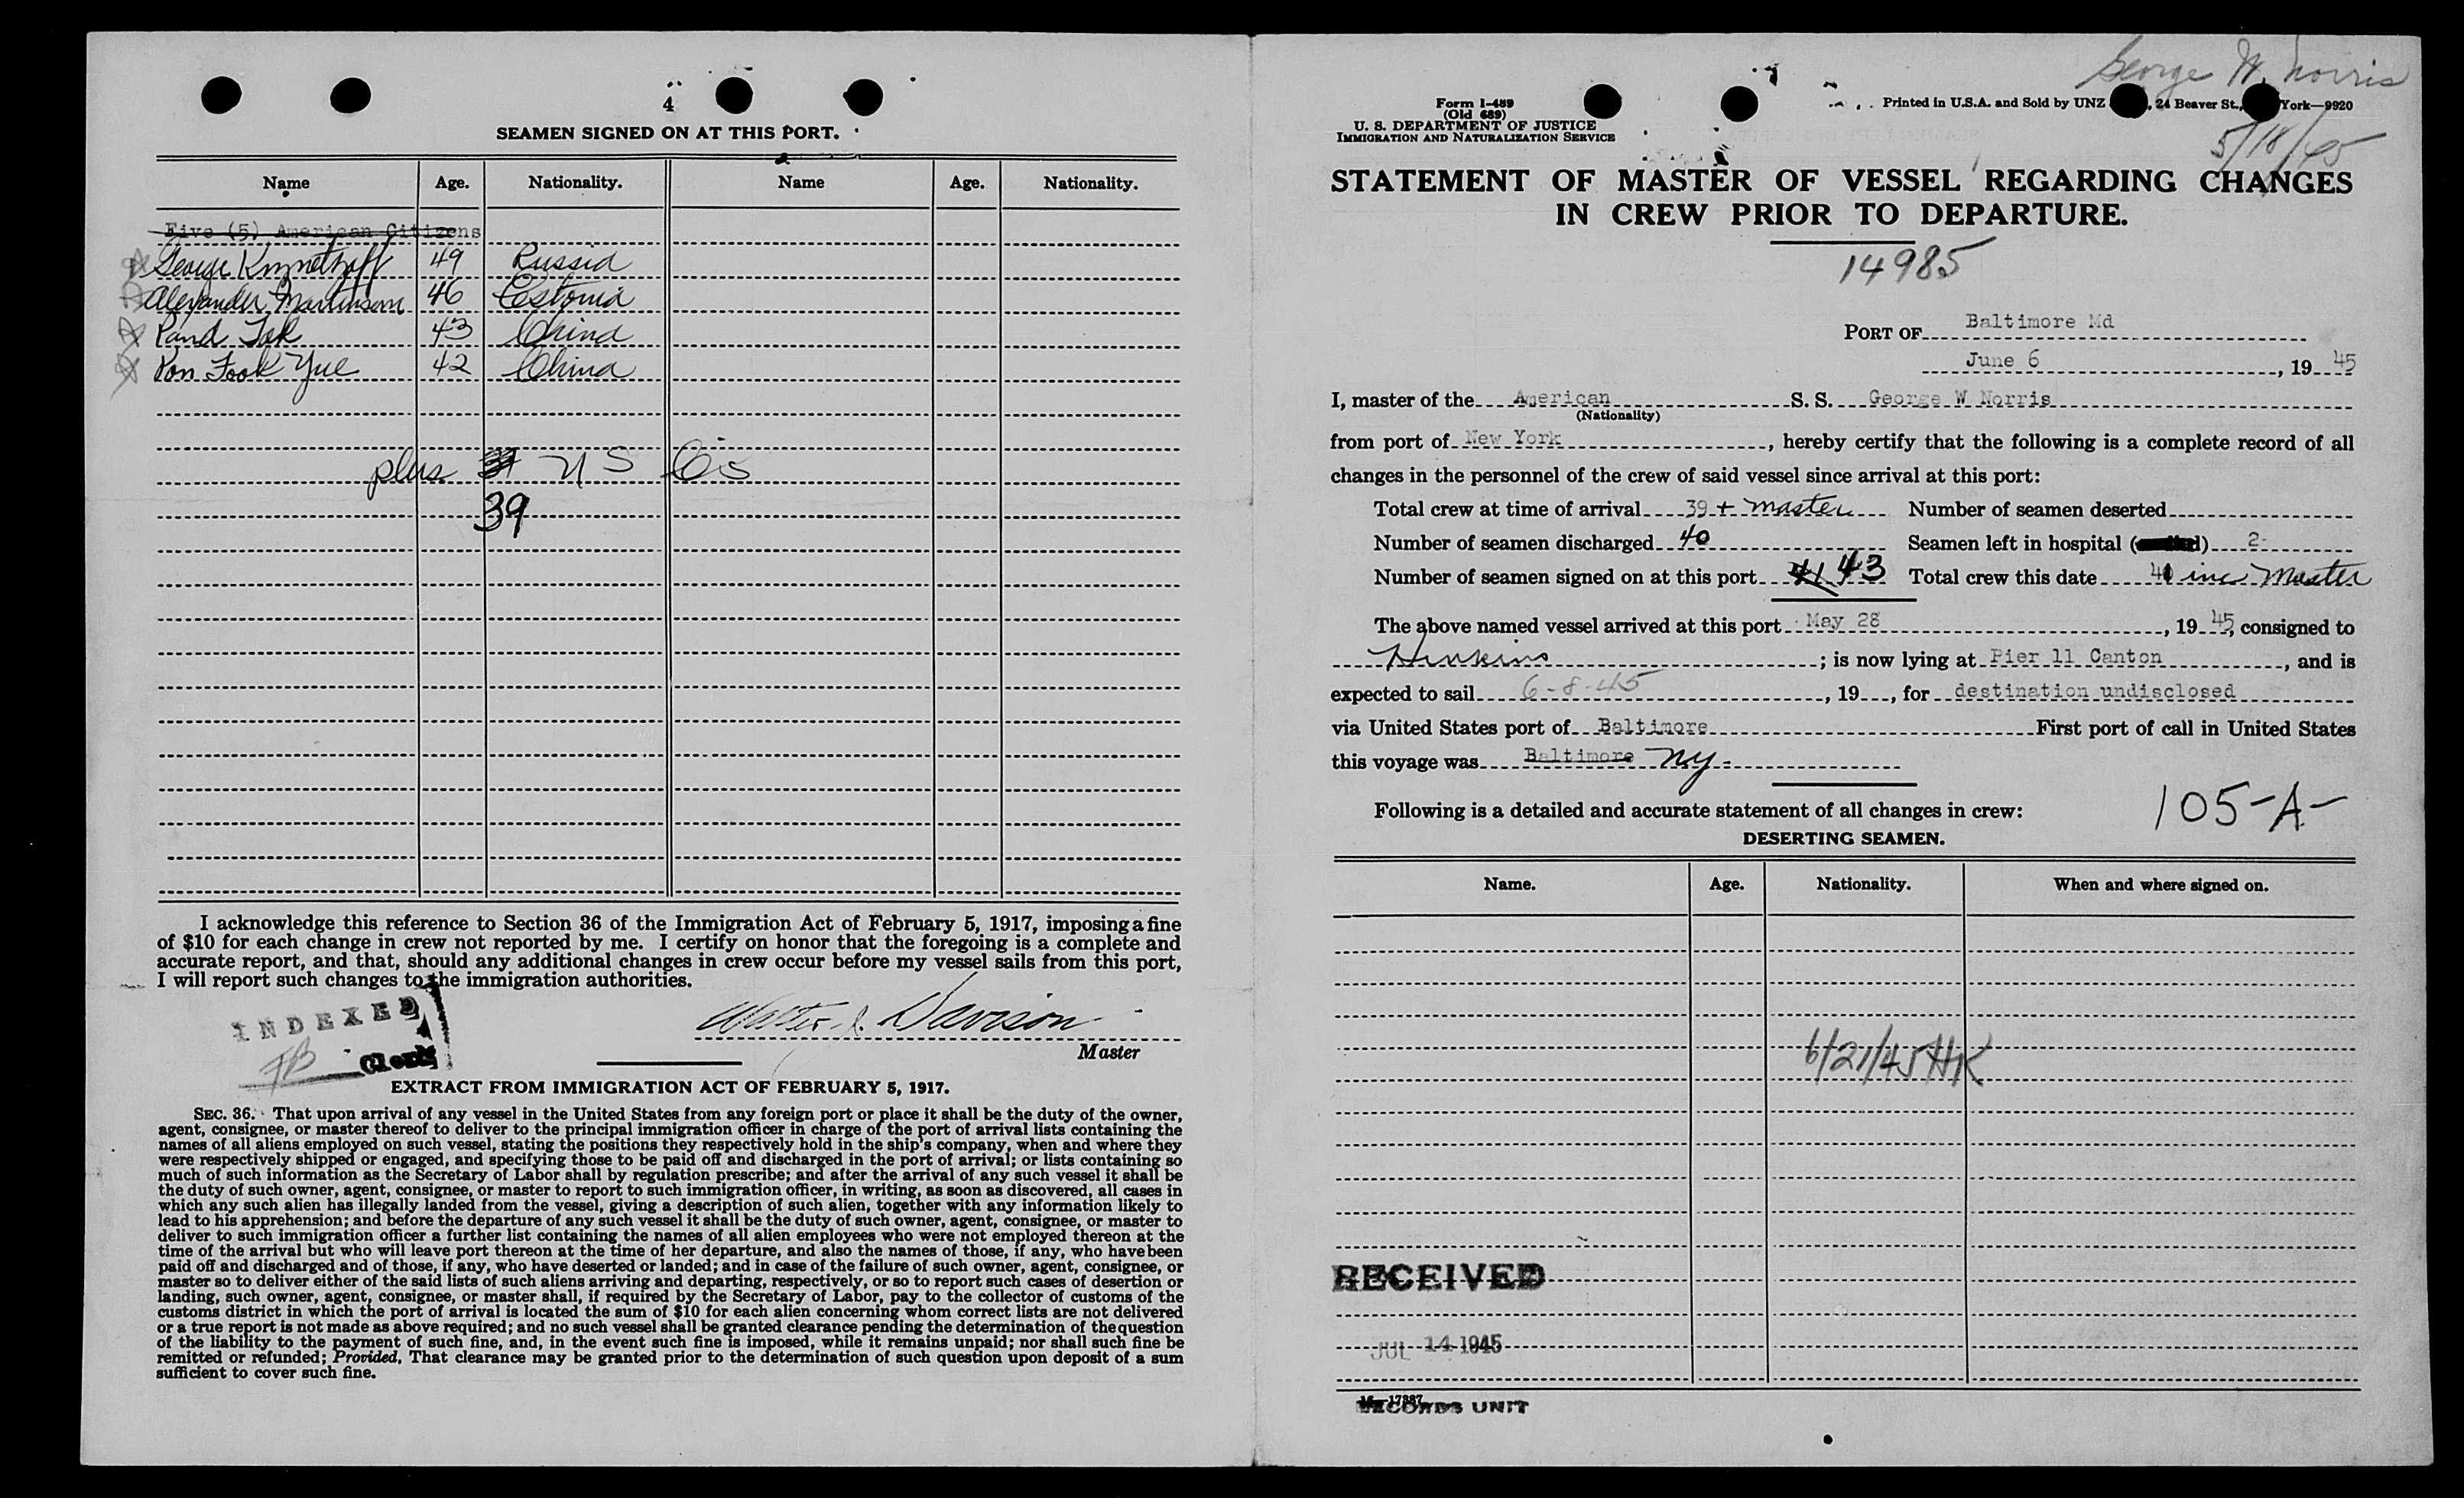 4
SEAMEN SIGNED ON AT THIS PORT.
Name Age. Nationality. Name Age. Nationality.
Five (5) American Citizens
George 49 Russia
Alexander Martinson 46 Estonia
Pand Tak 43 China
Pon Fook Yue 42 China
plus 37 U S Cis
39
I acknowledge this reference to Section 36 of the Immigration Act of February 5, 1917, imposing a fine
of $10 for each change in crew not reported by me. I certify on honor that the foregoing is a complete and
accurate report, and that, should any additional changes in crew occur before my vessel sails from this port,
I will report such changes to the immigration authorities.
INDEXED
Clerk
Walter J. Davison
Master
EXTRACT FROM IMMIGRATION ACT OF FEBRUARY 5, 1917.
SEC. 36. That upon arrival of any vessel in the United States from any foreign port or place it shall be the duty of the owner,
agent, consignee, or master thereof to deliver to the principal immigration officer in charge of the port of arrival lists containing the
names of all aliens employed on such vessel, stating the positions they respectively hold in the ship's company, when and where they
were respectively shipped or engaged, and specifying those to be paid off and discharged in the port of arrival; or lists containing so
much of such information as the Secretary of Labor shall by regulation prescribe; and after the arrival of any such vessel it shall be
the duty of such owner, agent, consignee, or master to report to such immigration officer, in writing, as soon as discovered, all cases in
which any such alien has illegally landed from the vessel, giving a description of such alien, together with any information likely to
lead to his apprehension; and before the departure of any such vessel it shall be the duty of such owner, agent, consignee, or master to
deliver to such immigration officer a further list containing the names of all alien employees who were not employed thereon at the
time of the arrival but who will leave port thereon at the time of her departure, and also the names of those, if any, who have been
paid off and discharged and of those, if any, who have deserted or landed; and in case of the failure of such owner, agent, consignee, or
master so to deliver either of the said lists of such aliens arriving and departing, respectively, or so to report such cases of desertion or
landing, such owner, agent, consignee, or master shall, if required by the Secretary of Labor, pay to the collector of customs of the
customs district in which the port of arrival is located the sum of $10 for each alien concerning whom correct lists are not delivered
or a true report is not made as above required; and no such vessel shall be granted clearance pending the determination of the question
of the liability to the payment of such fine, and, in the event such fine is imposed, while it remains unpaid; nor shall such fine be
remitted or refunded; Provided, That clearance may be granted prior to the determination of such question upon deposit of a sum
sufficient to cover such fine.
George W. Norris
Form I-489
(Old 689)
U. S. DEPARTMENT OF JUSTICE
IMMIGRATION AND NATURALIZATION SERVICE
Printed in U.S.A. and Sold by UNZ , 24 Beaver St., York—9920
5/18/45
STATEMENT OF MASTER OF VESSEL REGARDING CHANGES
IN CREW PRIOR TO DEPARTURE.
14985
PORT OF Baltimore Md
June 6 , 19 45
I, master of the American S. S. George W Norris
(Nationality)
from port of New York , hereby certify that the following is a complete record of all
changes in the personnel of the crew of said vessel since arrival at this port:
Total crew at time of arrival 39 + master Number of seamen deserted
Number of seamen discharged 40 Seamen left in hospital ( ) 2
Number of seamen signed on at this port 41 43 Total crew this date 40 inc Master
The above named vessel arrived at this port May 28 , 19 45, consigned to
Hinkins ; is now lying at Pier 11 Canton , and is
expected to sail 6-8-45 , 19 , for destination undisclosed
via United States port of Baltimore First port of call in United States
this voyage was Baltimore NY-
Following is a detailed and accurate statement of all changes in crew:
105-A-
DESERTING SEAMEN.
Name. Age. Nationality. When and where signed on.
6/21/45 HK
RECEIVED
JUL 14 1945
RECORDS UNIT